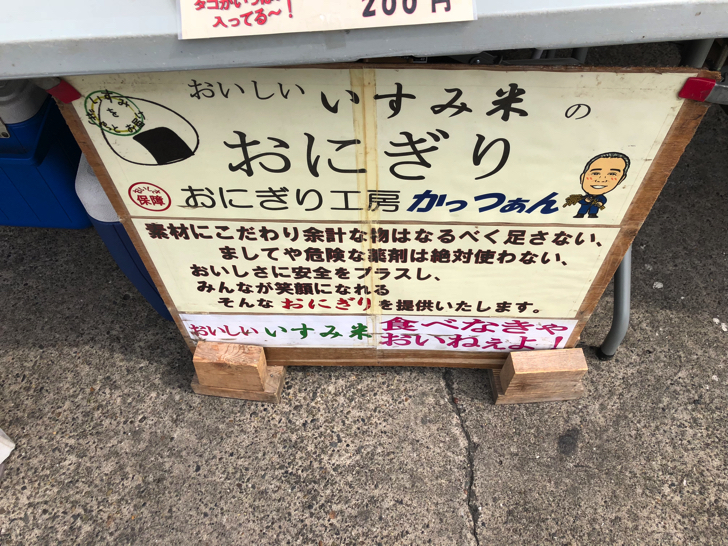 入ってる～！
200円
おいしい いすみ米の
おにぎり
おいしさ
保障
おにぎり工房 かっつぁん
素材にこだわり余計な物はなるべく足さない、
ましてや危険な薬剤は絶対使わない、
おいしさに安全をプラスし、
みんなが笑顔になれる
そんな おにぎりを提供いたします。
おいしい いすみ米 食べなきゃ
おいねぇよ！